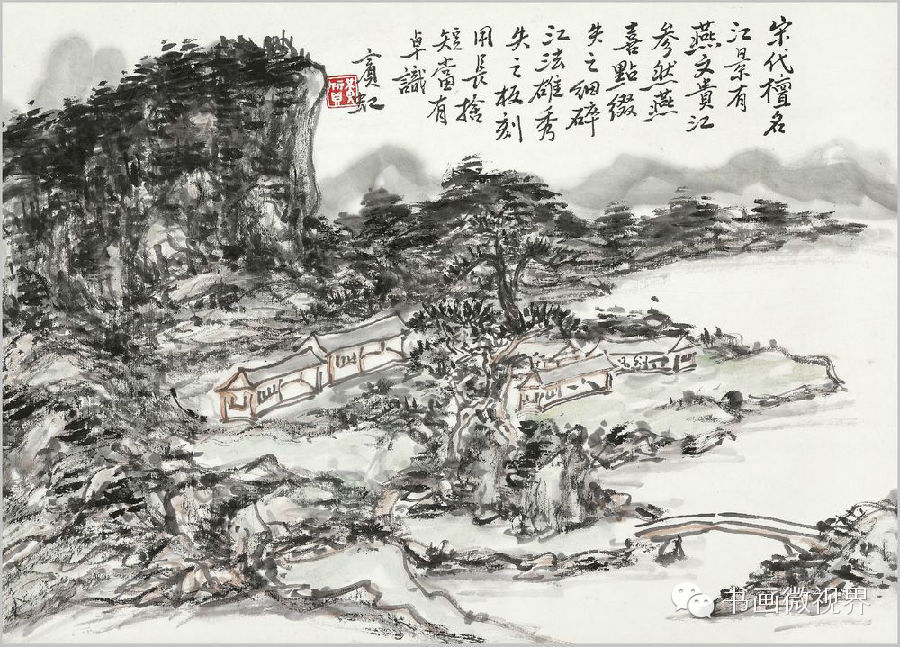 宋代檀名
江景有
燕文貴江
參然燕
喜點綴
失之細碎
江法雄秀
失之板刻
用長捨
短當有
卓識
賓虹
书画微视界